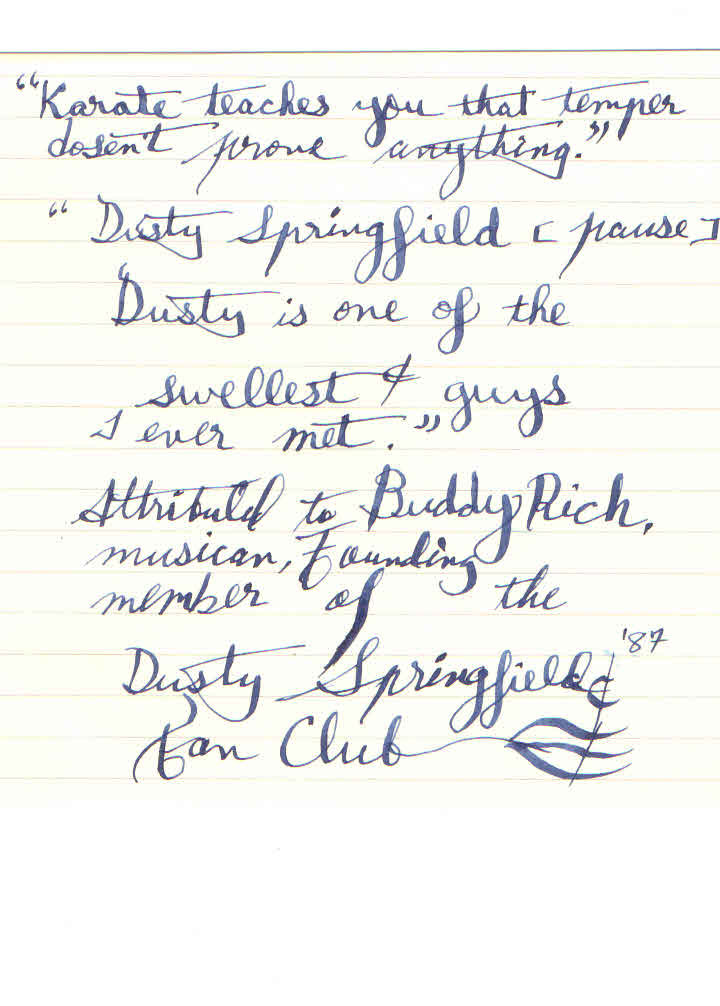 “Karate teaches you that temper
dosen't prove anything.”
“ Dusty Springfield [ pause ]
“Dusty is one of the
swellest guys
I ever met.”
Attributed to Buddy Rich,
musican, Founding
member of the
'87
Dusty Springfield
Fan Club